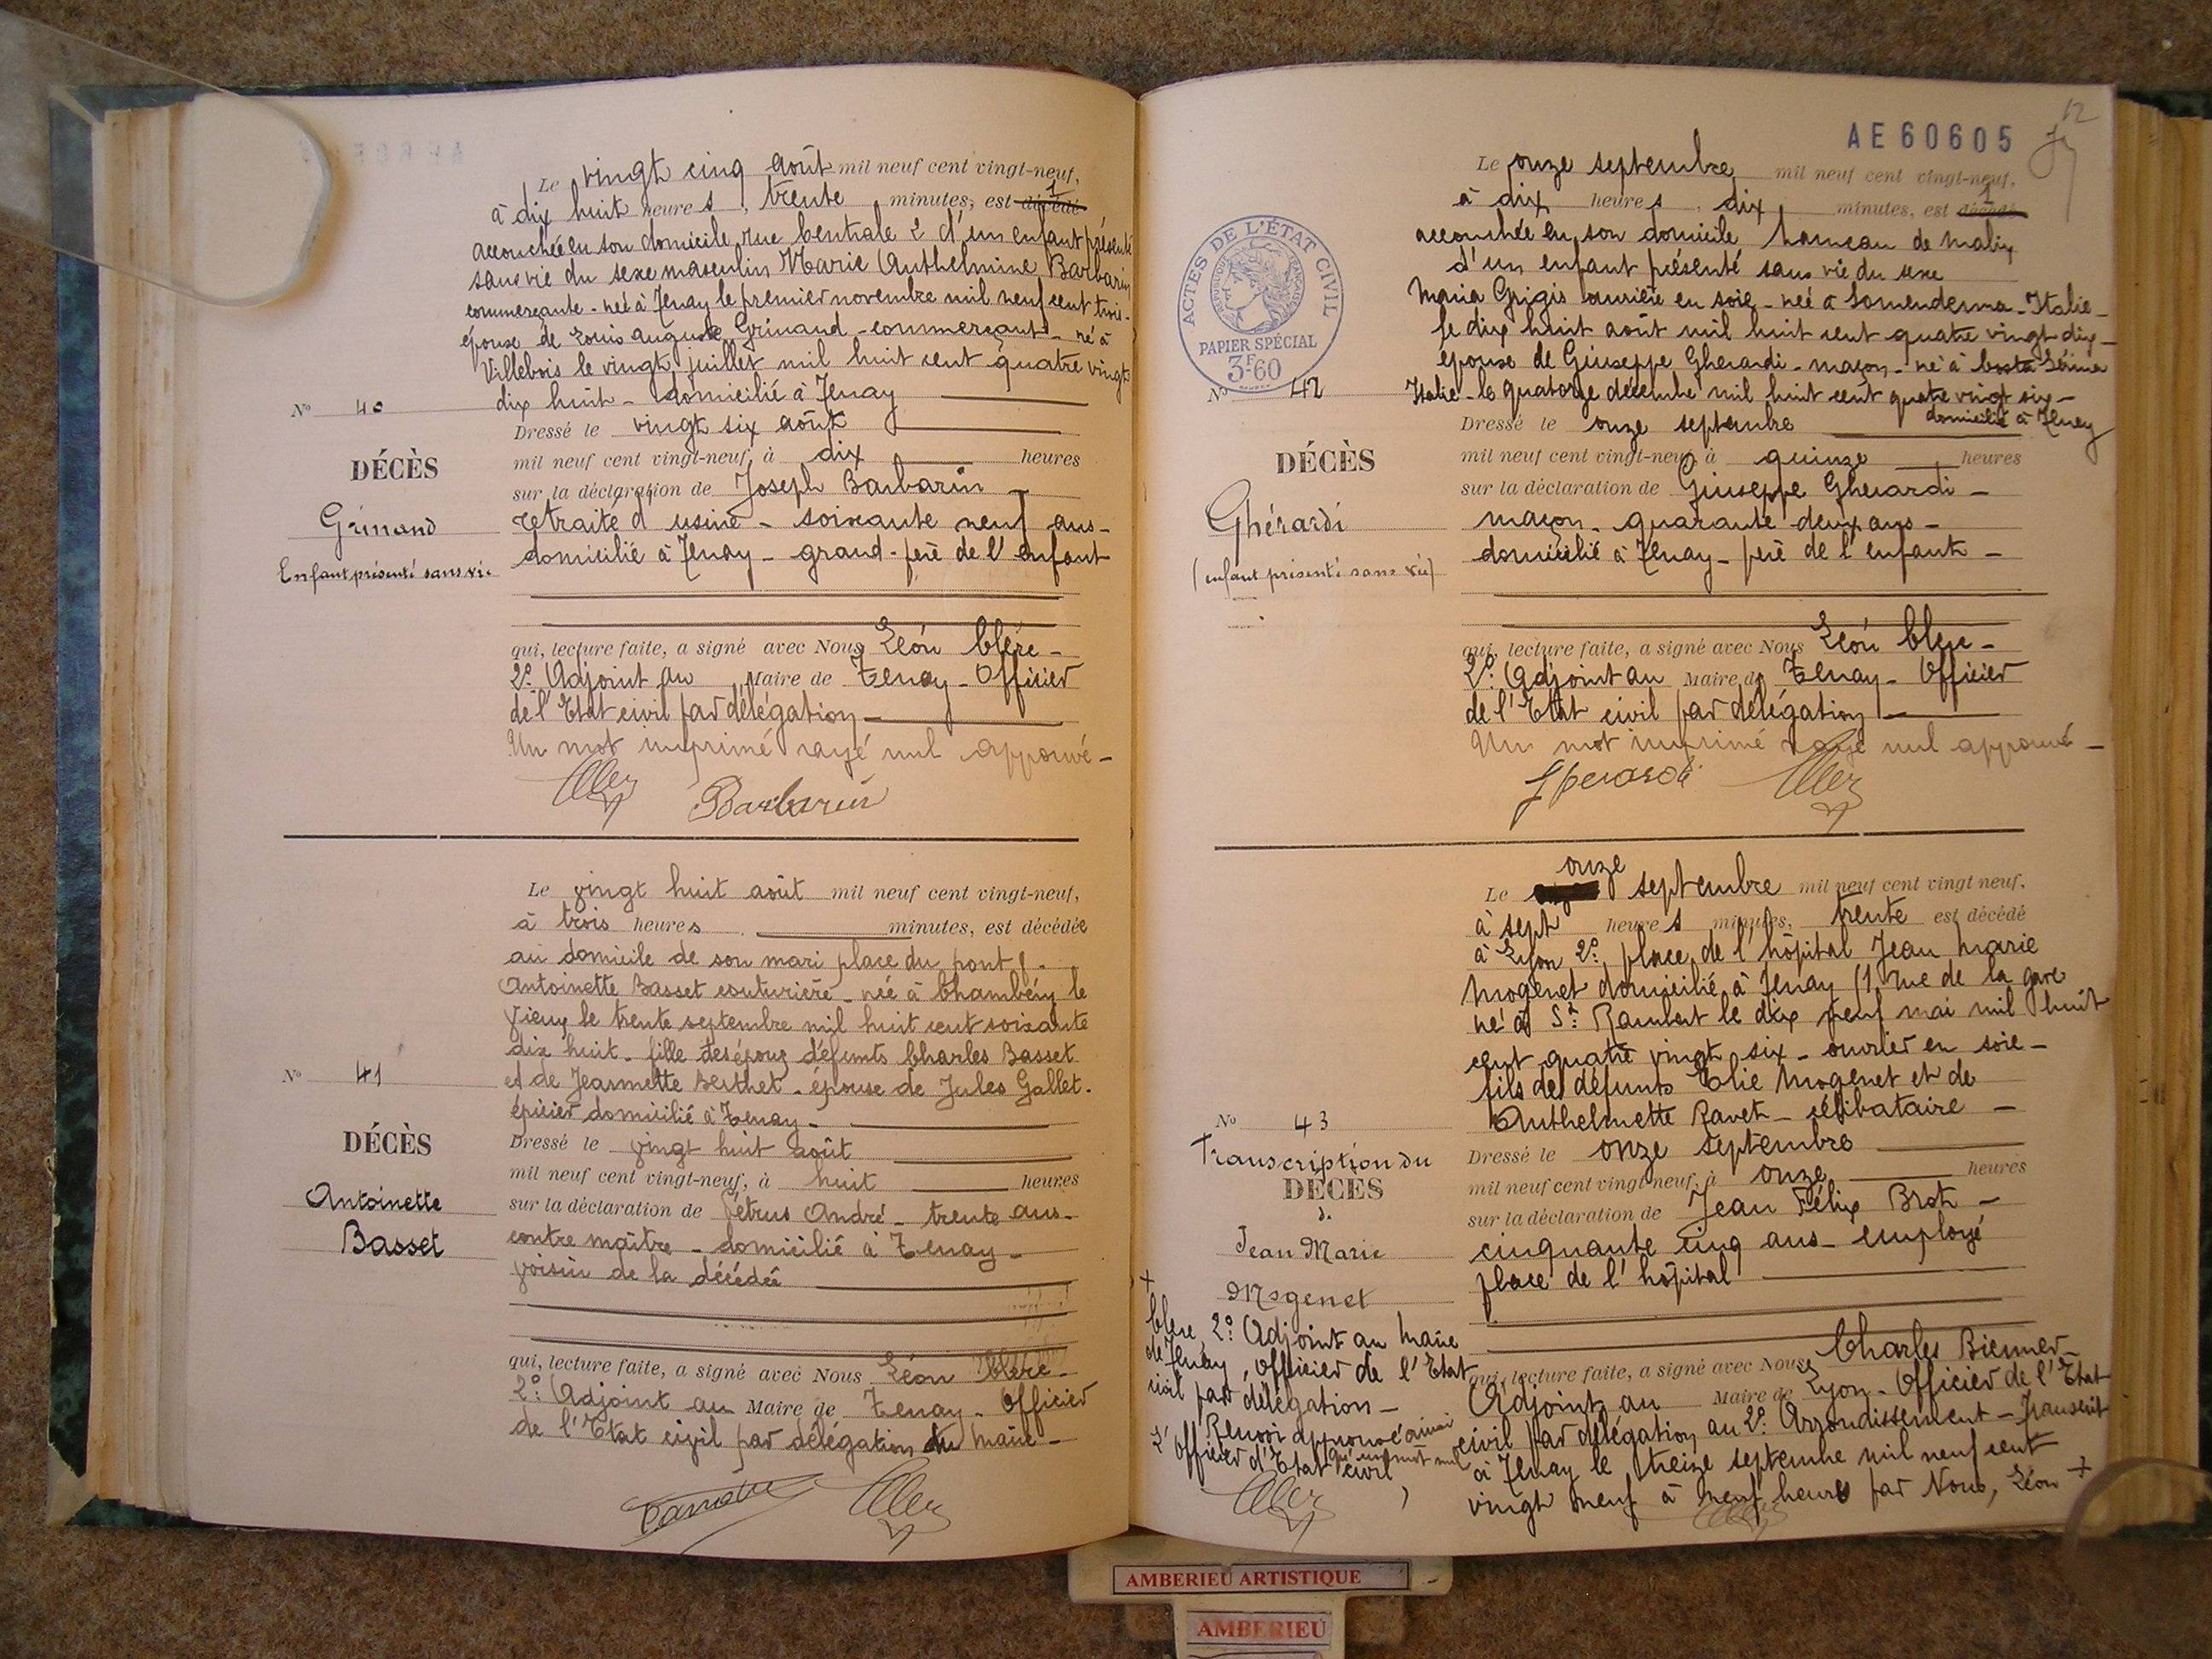 Le vingt cinq août mil neuf cent vingt-neuf,
à dix huit heures, trente minutes, est décédé
accouchée en son domicile rue Centrale 2 d'un enfant présenté
sans vie du sexe masculin Marie Anthelmine Barbarin
commerçante - née à Tenay le premier novembre mil neuf cent trois -
épouse de Louis Auguste Grinand - commerçant - né à
Villebois le vingt juillet mil huit cent quatre vingt
dix huit - domicilié à Tenay
N° 40
Dressé le vingt six août
mil neuf cent vingt-neuf, à dix heures
DÉCÈS
sur la déclaration de Joseph Barbarin -
Grinand
retraité d'usine - soixante neuf ans -
domicilié à Tenay - grand-père de l'enfant
Enfant présenté sans vie
qui, lecture faite, a signé avec Nous Léon Clere -
2e Adjoint au Maire de Tenay - Officier
de l'Etat civil par délégation -
Un mot imprimé rayé nul approuvé -
Barbarin
Le vingt huit août mil neuf cent vingt-neuf,
à trois heures minutes, est décédée
au domicile de son mari place du pont
Antoinette Basset couturière - née à Chambéry le
Vieux le trente septembre mil huit cent soixante
dix huit - fille des époux défunts Charles Basset
et de Jeannette Berthet - épouse de Jules Gallet -
N° 41
épicier domicilié à Tenay -
DÉCÈS
Dressé le vingt huit août
mil neuf cent vingt-neuf, à huit heures
Antoinette
sur la déclaration de Pétrus André - trente ans -
Basset
contre maître - domicilié à Tenay -
voisin de la décédée
qui, lecture faite, a signé avec Nous Léon Clere -
2e Adjoint au Maire de Tenay - Officier
de l'Etat civil par délégation du maire -
12
AE60605
Le onze septembre mil neuf cent vingt-neuf,
à dix heures, dix minutes, est décédé
accouchée en son domicile hameau de Malix
d'un enfant présenté sans vie du sexe
Maria Grigis ouvrière en soie - née à - Italie -
le dix huit août mil huit cent quatre vingt dix -
épouse de Giuseppe Gherardi - maçon - né à Costa Sérina
Italie - le quatorze décembre mil huit cent quatre vingt six -
domicilié à Tenay
ACTES DE L'ÉTAT CIVIL
RÉPUBLIQUE FRANÇAISE
PAPIER SPÉCIAL
3F60
N° 42
Dressé le onze septembre
DÉCÈS
mil neuf cent vingt-neuf, à quinze heures
sur la déclaration de Giuseppe Gherardi -
Ghérardi
maçon - quarante deux ans -
(enfant présenté sans vie)
domicilié à Tenay - père de l'enfant -
qui, lecture faite, a signé avec Nous Léon Clere -
2e Adjoint au Maire de Tenay - Officier
de l'Etat civil par délégation -
Un mot imprimé rayé nul approuvé -
Gherardi
onze
Le septembre mil neuf cent vingt neuf,
à sept heures minutes, trente est décédé
à Lyon 2e, place de l'hôpital Jean Marie
Mogenet domicilié à Tenay (1, rue de la gare
né à St Rambert le dix neuf mai mil huit
cent quatre vingt six - ouvrier en soie -
fils des défunts Elie Mogenet et de
Anthelmette Ravet - célibataire -
N° 43
Dressé le onze septembre
Transcription du
DÉCÈS
mil neuf cent vingt neuf, à onze heures
sur la déclaration de Jean Félix Brot -
Jean Marie
cinquante cinq ans - employé
Mogenet
place de l'hôpital
qui, lecture faite, a signé avec Nous, Charles Biennier -
Adjoint au Maire de Lyon - Officier de l'Etat
civil par délégation au 2e Arrondissement - Transcrit
à Tenay le treize septembre mil neuf cent
vingt neuf à neuf heures par Nous, Léon +
+
Clere 2e Adjoint au Maire
de Tenay, Officier de l'Etat
civil par délégation -
Renvoi approuvé ainsi
qu'un mot nul
L'Officier d'Etat civil,
AMBERIEU ARTISTIQUE
AMBERIEU